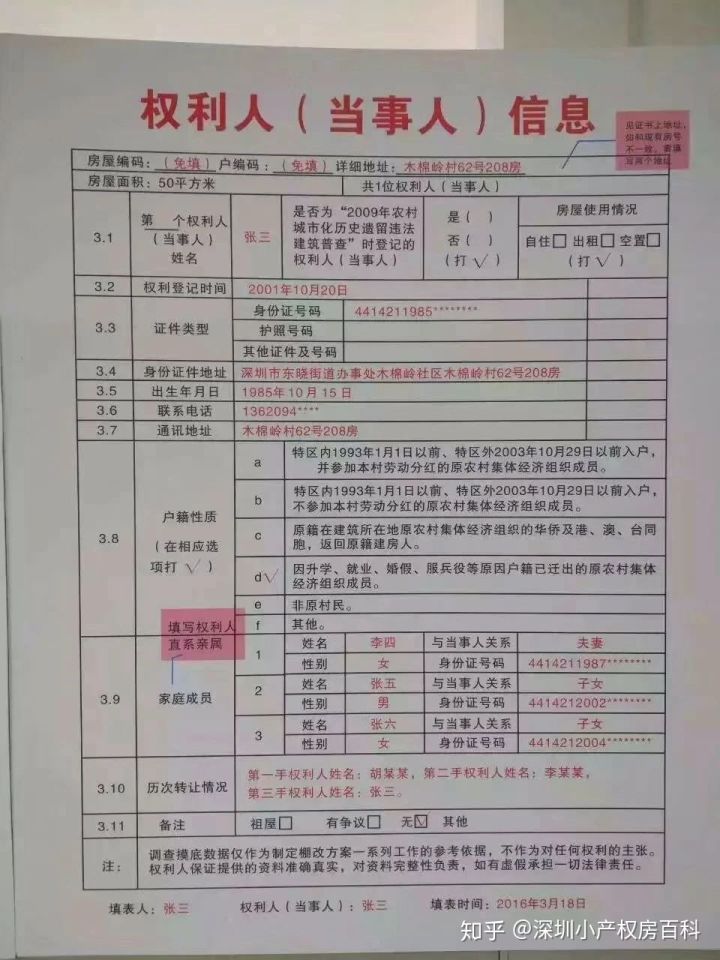 权利人（当事人）信息
见证书上地址，
如和现有房号
不一致，需填
写两个地址
房屋编码：（免填）户编码：（免填）详细地址：木棉岭村62号208房
房屋面积：50平方米 共1位权利人（当事人）
3.1 第 个权利人（当事人）姓名 张三 是否为“2009年农村城市化历史遗留违法建筑普查”时登记的权利人（当事人） 是（ ） 否（ ） （打√） 房屋使用情况 自住□ 出租□ 空置□ （打√）
3.2 权利登记时间 2001年10月20日
3.3 证件类型 身份证号码 4414211985********
护照号码
其他证件及号码
3.4 身份证件地址 深圳市东晓街道办事处木棉岭社区木棉岭村62号208房
3.5 出生年月日 1985年10月15日
3.6 联系电话 1362094****
3.7 通讯地址 木棉岭村62号208房
3.8 户籍性质（在相应选项打√）
a 特区内1993年1月1日以前、特区外2003年10月29日以前入户，
并参加本村劳动分红的原农村集体经济组织成员。
b 特区内1993年1月1日以前、特区外2003年10月29日以前入户，
不参加本村劳动分红的原农村集体经济组织成员。
c 原籍在建筑所在地原农村集体经济组织的华侨及港、澳、台同
胞，返回原籍建房人。
d√ 因升学、就业、婚假、服兵役等原因户籍已迁出的原农村集体
经济组织成员。
e 非原村民。
f 其他。
填写权利人
直系亲属
3.9 家庭成员
1 姓名 李四 与当事人关系 夫妻
性别 女 身份证号码 4414211987********
2 姓名 张五 与当事人关系 子女
性别 男 身份证号码 4414212002********
3 姓名 张六 与当事人关系 子女
性别 女 身份证号码 4414212004********
3.10 历次转让情况 第一手权利人姓名：胡某某，第二手权利人姓名：李某某，
第三手权利人姓名：张三。
3.11 备注 祖屋□ 有争议□ 无☑ 其他
注： 调查摸底数据仅作为制定棚改方案一系列工作的参考依据，不作为对任何权利的主张。
权利人保证提供的资料准确真实，对资料完整性负责，如有虚假承担一切法律责任。
填表人：张三 权利人（当事人）：张三 填表时间：2016年3月18日
知乎 @深圳小产权房百科